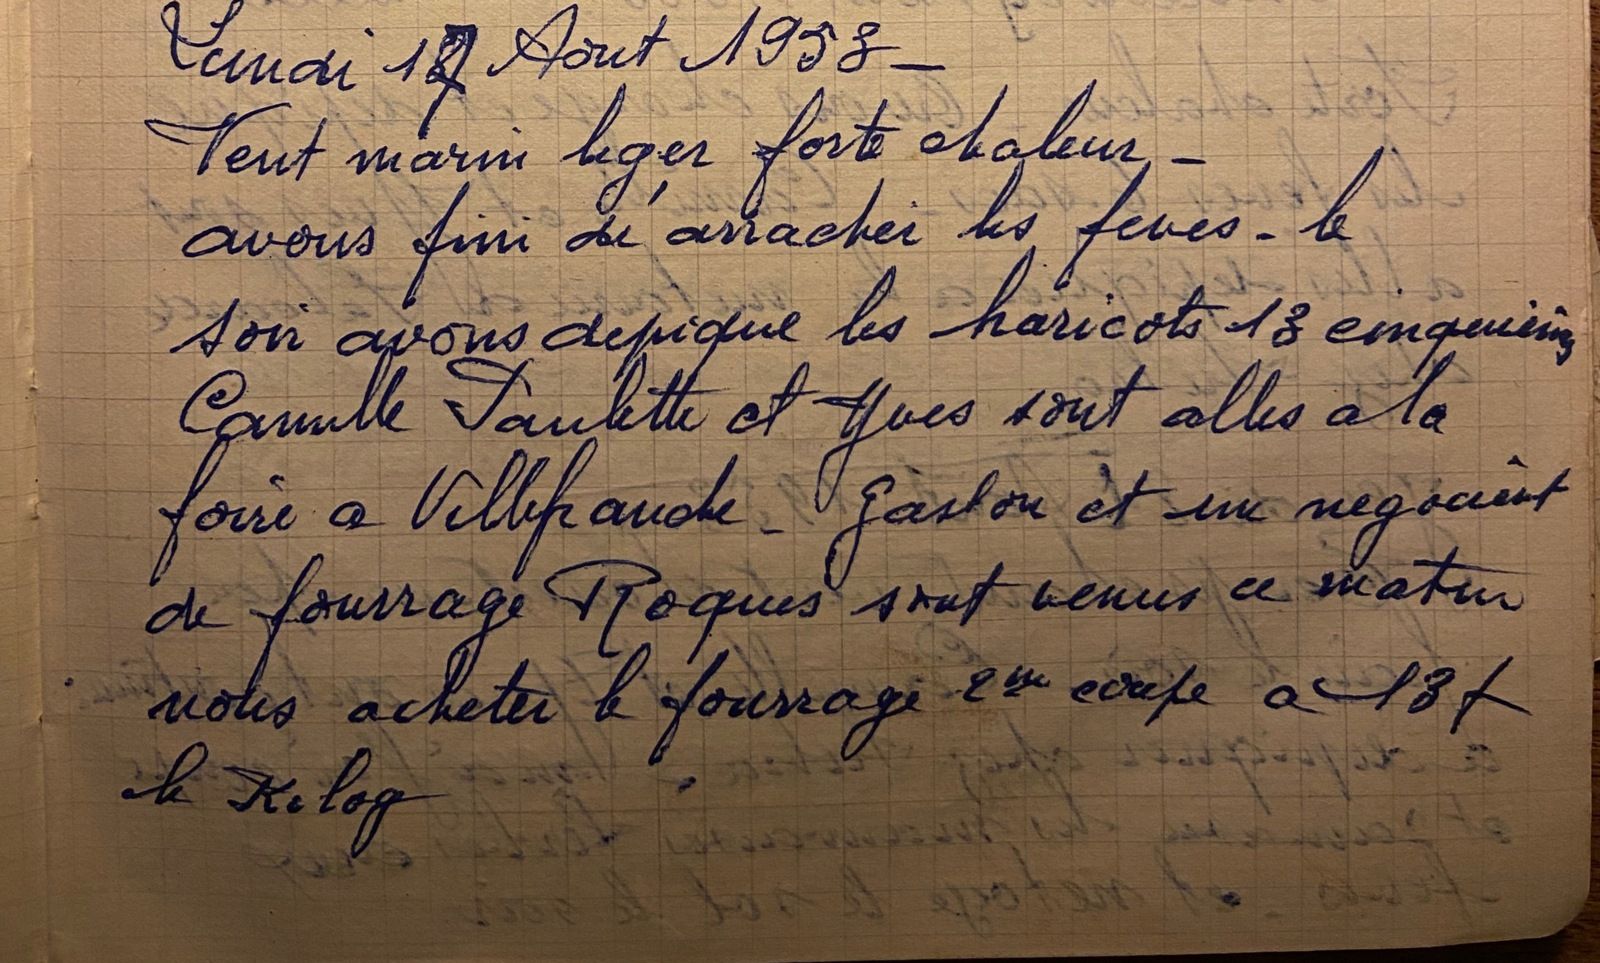 Lundi 17 Aout 1953 —
Vent marin leger forte chaleur —
avons fini de arracher les feves - le
soir avons depique les haricots 13
Camille Paulette et Yves sont alles a la
foire a Villefranche - Gaston et un negociant
de fourrage Roques sont venus ce matin
nous acheter le fourrage 2me coupe a 13 f
le Kilog